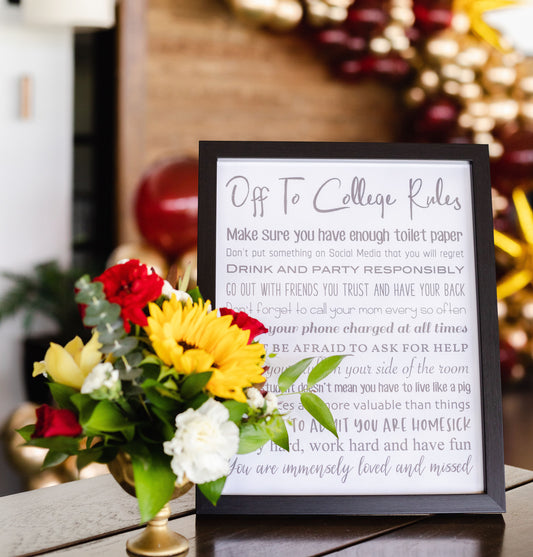 Off To College Rules
Make sure you have enough toilet paper
Don't put something on Social Media that you will regret
DRINK AND PARTY RESPONSIBLY
GO OUT WITH FRIENDS YOU TRUST AND HAVE YOUR BACK
Don't forget to call your mom every so often
your phone charged at all times
BE AFRAID TO ASK FOR HELP
your side of the room
doesn't mean you have to live like a pig
more valuable than things
TO ADMIT YOU ARE HOMESICK
hard, work hard and have fun
You are immensely loved and missed